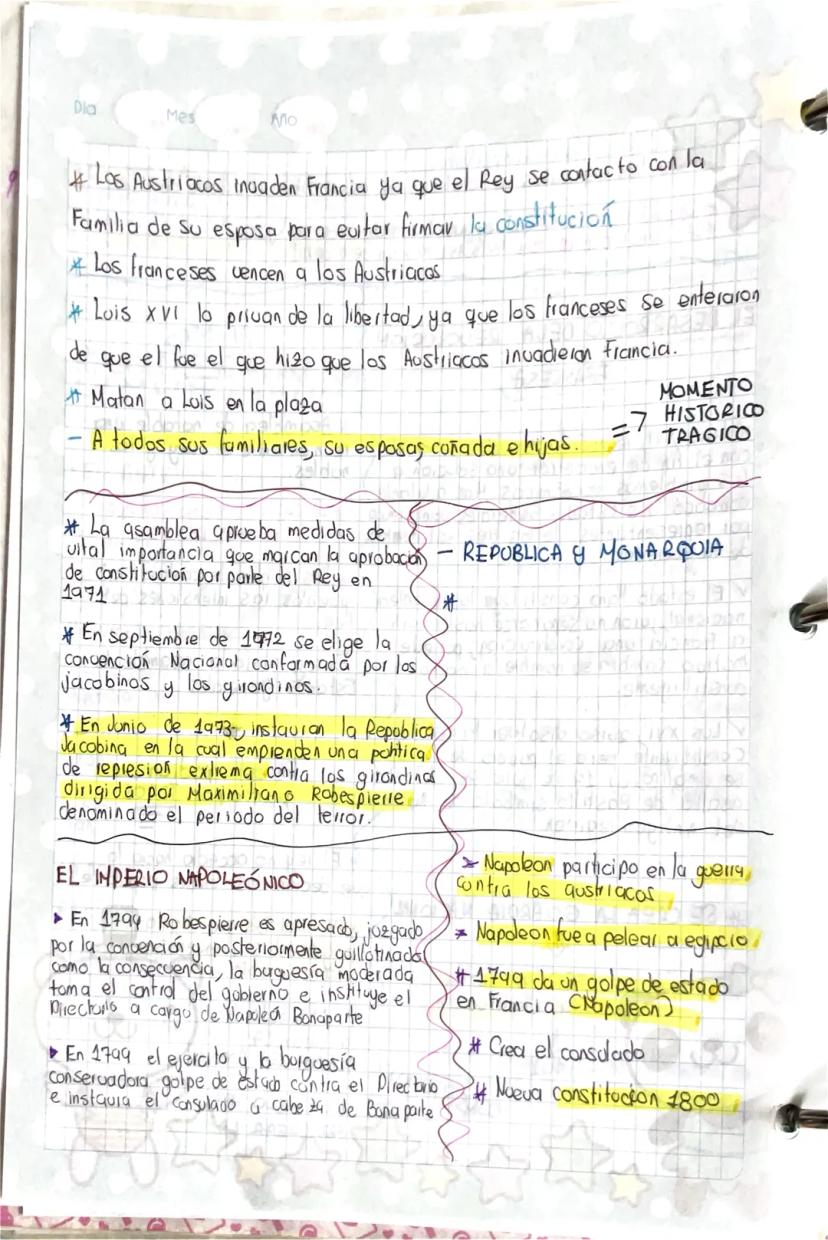 Dia Mes Año
* Los Austriacos invaden Francia ya que el Rey se contacto con la
Familia de su esposa para evitar firmar la constitución
* Los franceses vencen a los Austriacos
* Luis XVI lo privan de la libertad, ya que los franceses se enteraron
de que el fue el que hizo que los Austriacos invadieran Francia.
* Matan a Luis en la plaza
- A todos sus familiares, su esposas coñada e hijas. =>
MOMENTO
HISTORICO
TRAGICO
* La asamblea aprueba medidas de
vital importancia que marcan la aprobación
de constitución por parte del Rey en
1971
* En septiembre de 1972 se elige la
convención Nacional conformada por los
jacobinos y los girondinos.
* En Junio de 1973, instauran la Republica
Jacobina en la cual emprenden una politica
de represion extrema contra los girondinos
dirigida por Maximiliano Robespierre
denominado el periodo del terror.
- REPUBLICA y MONARQUIA
*
EL IMPERIO NAPOLEÓNICO
▸ En 1794 Robespierre es apresado, juzgado
por la convención y posteriormente guillotinado
como la consecuencia, la burguesía moderada
toma el control del gobierno e instituye el
Directorio a cargo de Napoleón Bonaparte
▸ En 1799 el ejercito y la burguesía
conservadora golpe de estado contra el Directorio
e instaura el consulado a cabeza de Bonaparte
* Napoleon participo en la guerra
contra los austriacos
* Napoleon fue a pelear a egipcio
* 1799 da un golpe de estado
en Francia (Napoleon)
* Crea el consulado
* Nueva constitucion 1800